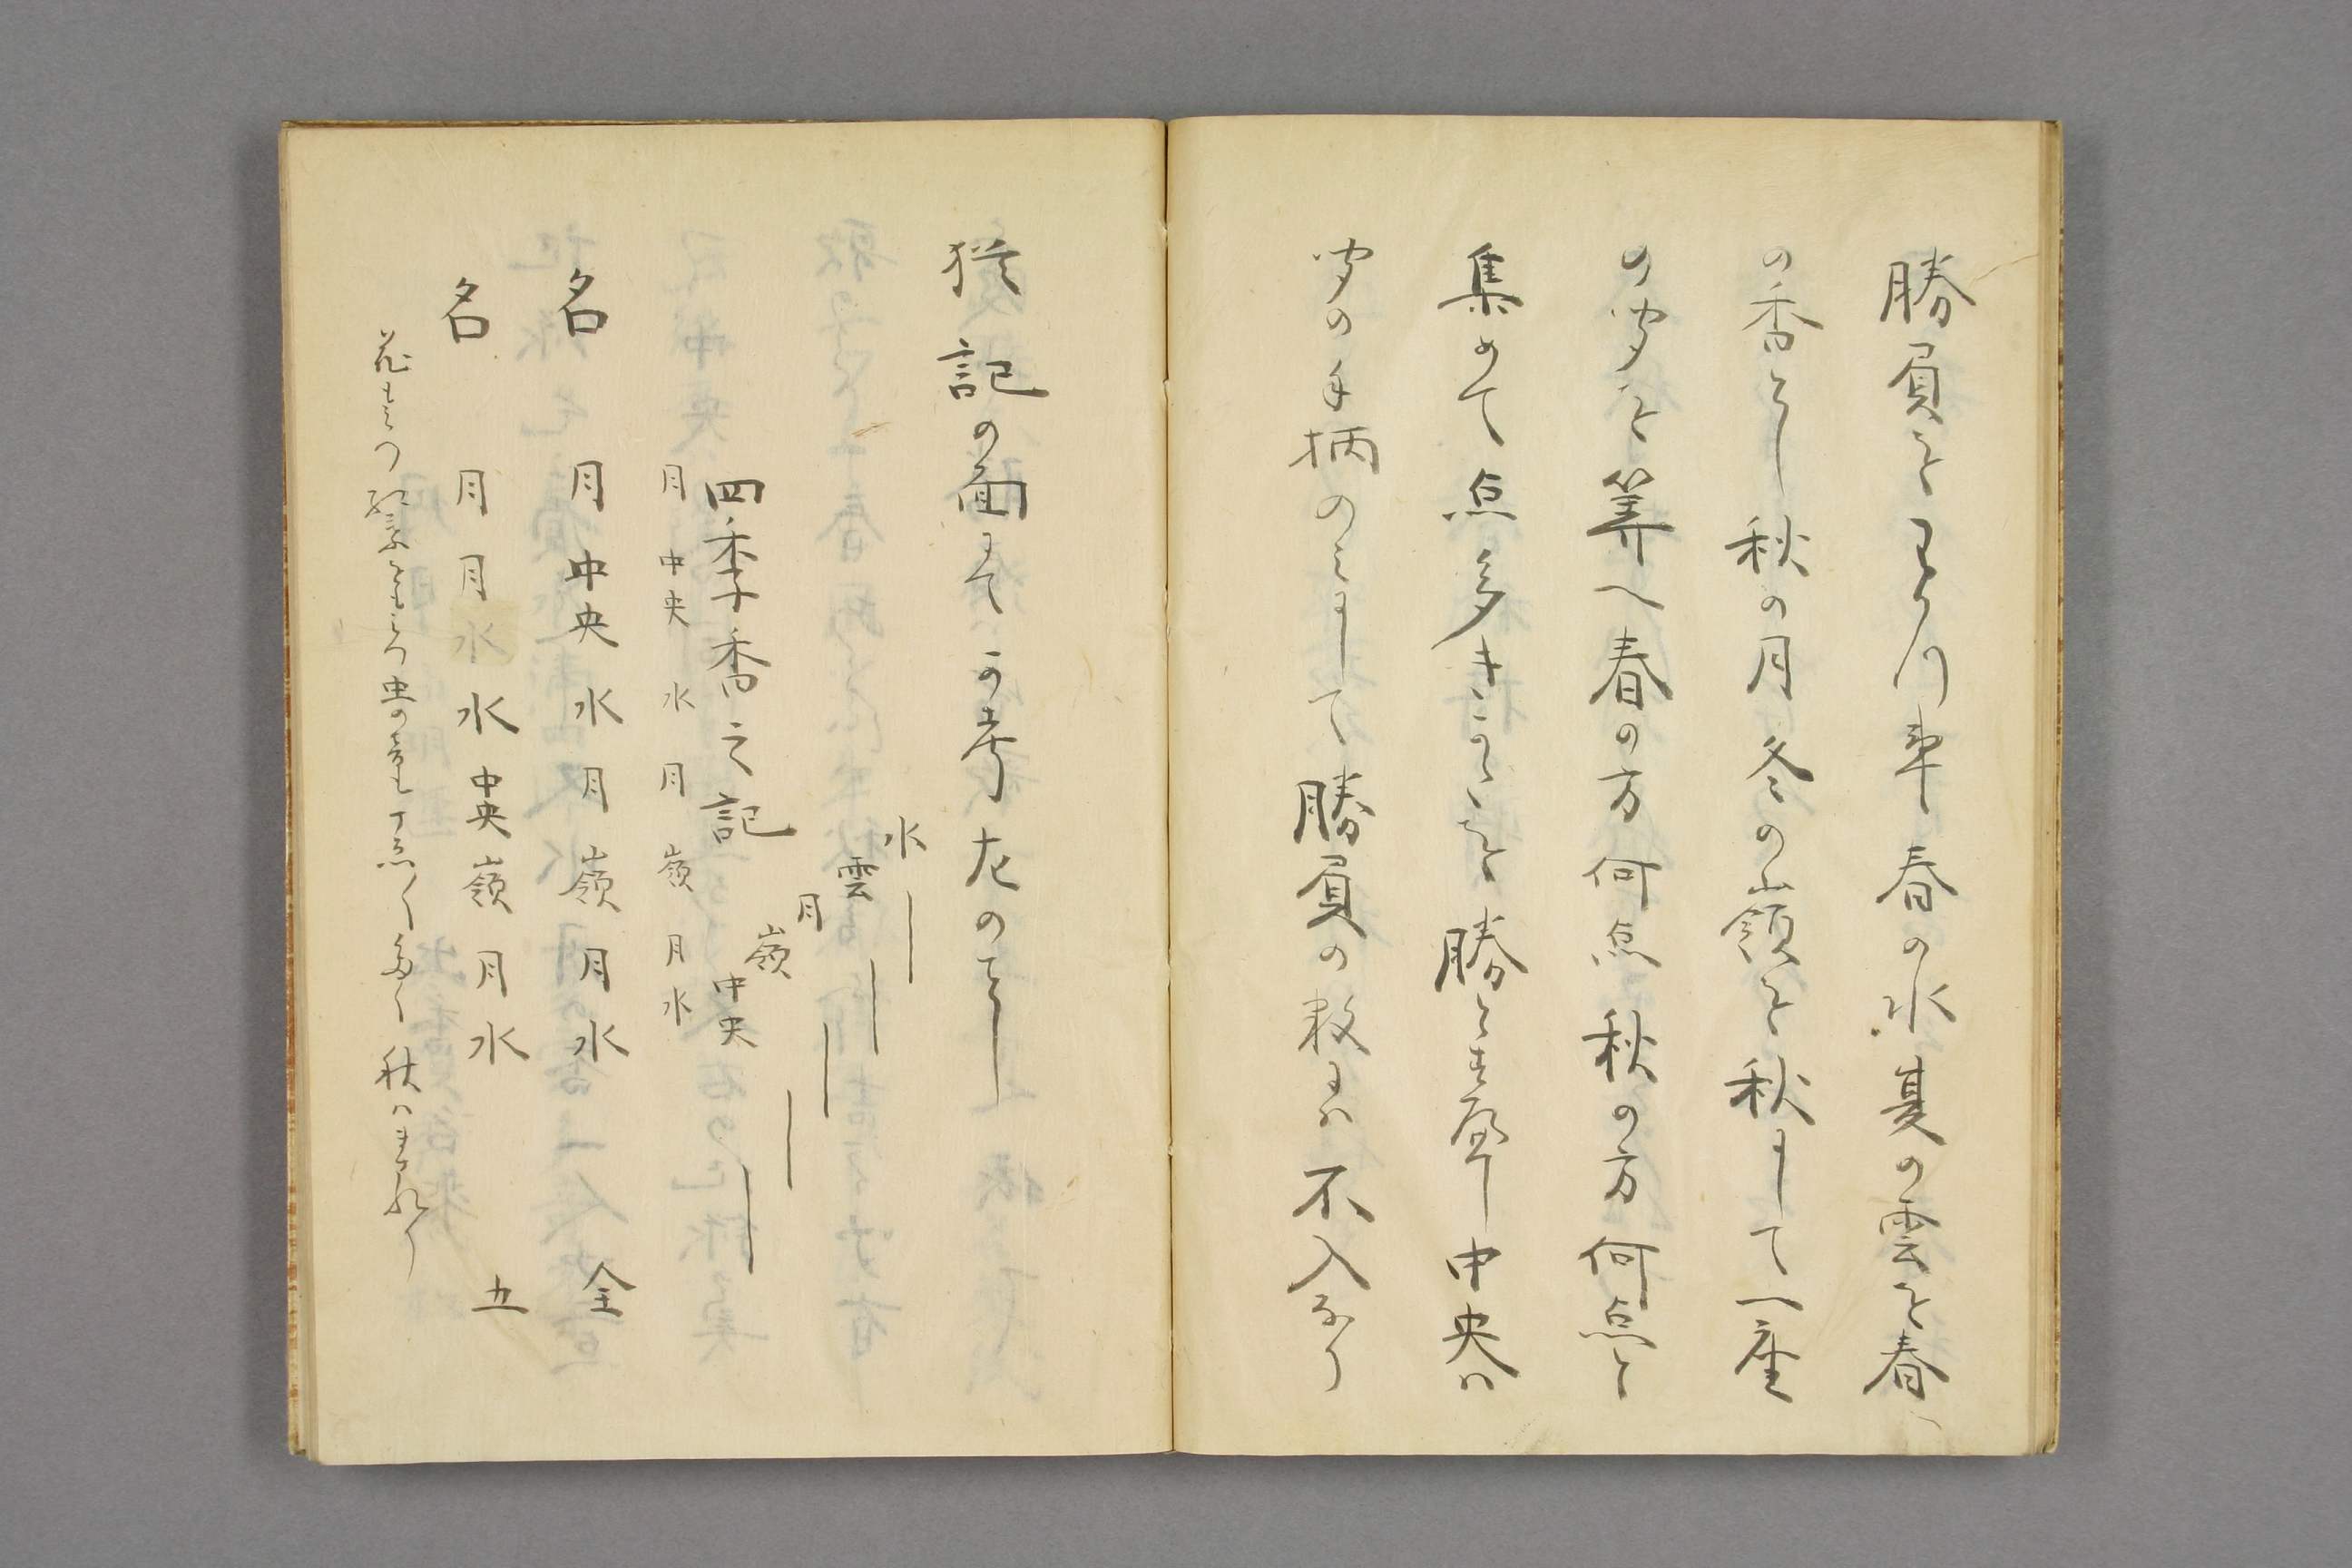 勝負をわかつ事春の水夏の雲を春
の香とし秋の月冬の嶺を秋にして一座
の聞を算へ春の方何点秋の方何点と
集めて点多きかたを勝とす尤中央ハ
聞の手柄のミにして勝負の数にハ不入なり
猶記の面にて可考左のことし
水
雲
月
嶺
中央
四季香之記
月 中央 水 月 嶺 月 水
名 月 中央 水 月 嶺 月 水 全
名 月 月 水 水 中央 嶺 月 水 五
花もミつ紅葉をもミつ虫の音も
秋ハまされり